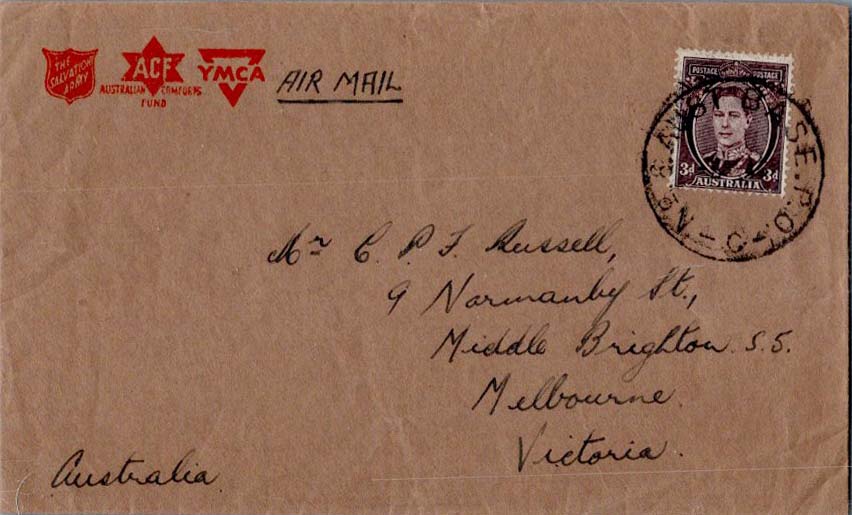 THE SALVATION ARMY
ACF
AUSTRALIAN COMFORTS FUND
YMCA
AIR MAIL
POSTAGE POSTAGE
3d 3d
AUSTRALIA
No 8 AUST BASE. P.O. - C -
Mr C. P. F. Russell,
9 Normanby St.,
Middle Brighton S.5.
Melbourne.
Victoria.
Australia